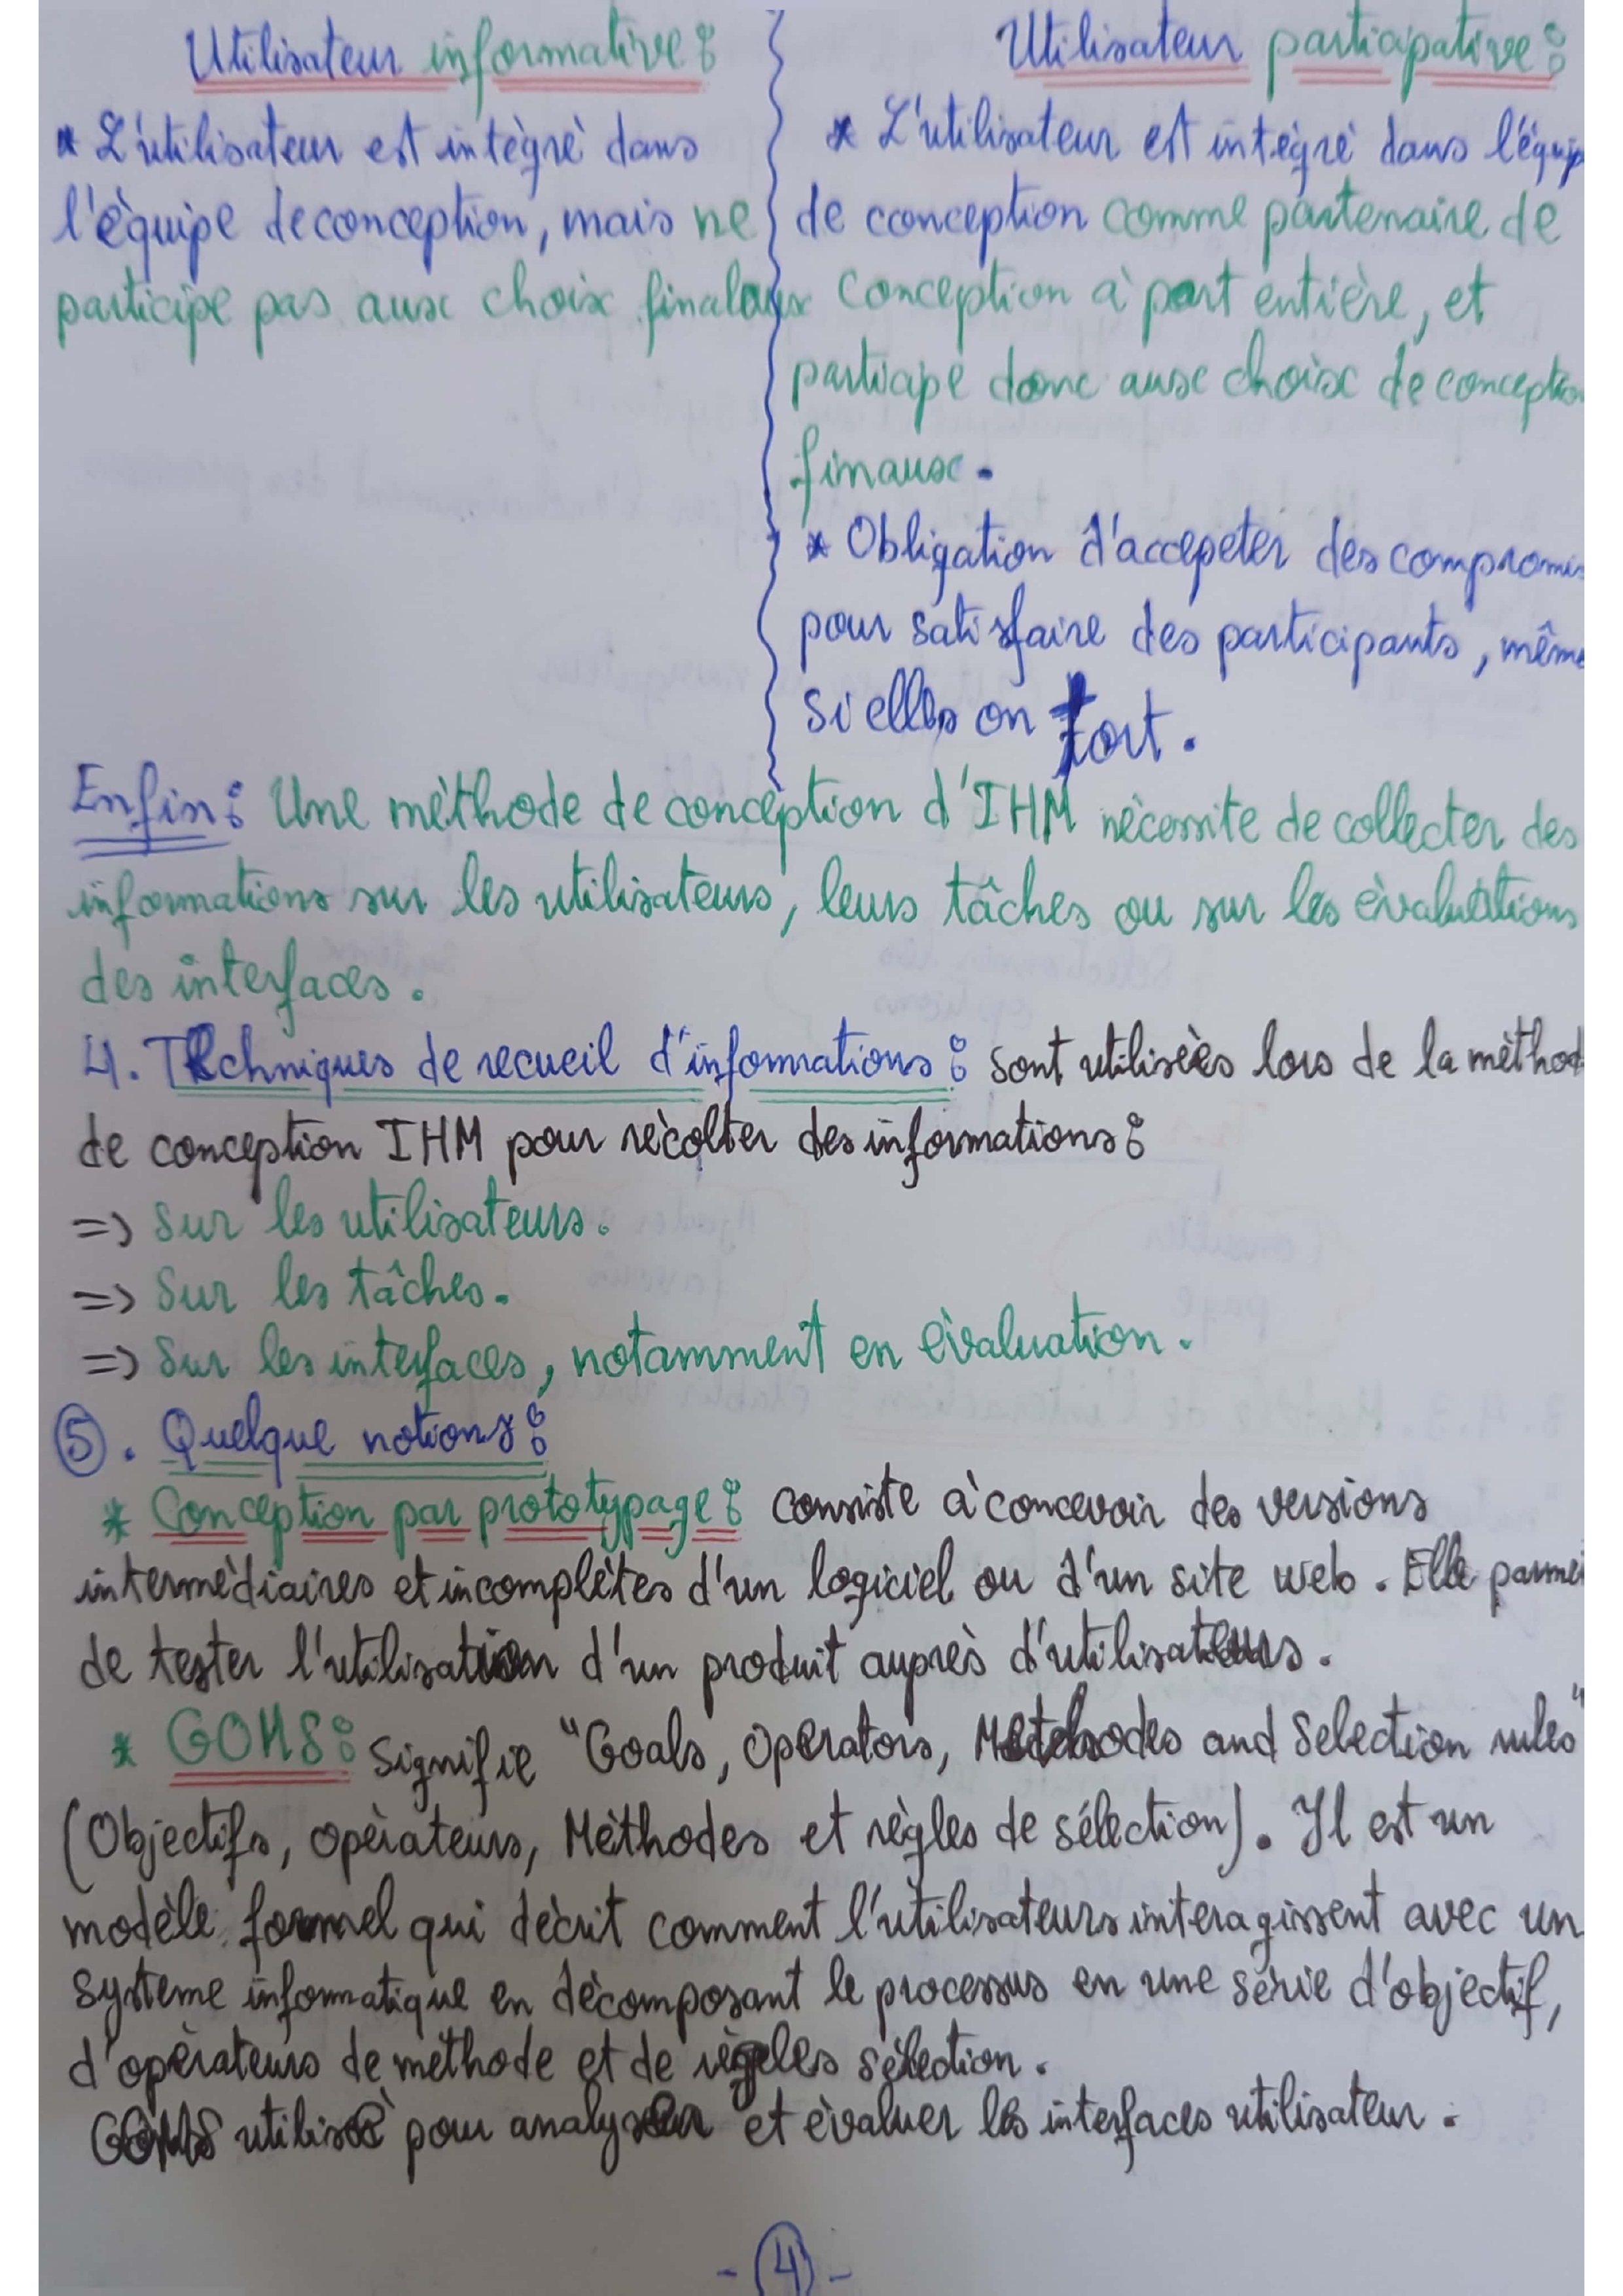 Utilisateur informative :
* L'utilisateur est intègrè dans
l'èquipe de conception, mais ne
participe pas aux choix finalaux
Utilisateur participative :
* L'utilisateur est intégré dans l'équip
de conception comme partenaire de
conception à part entière, et
participe donc aux choix de conceptio
finaux.
* Obligation d'accepeter des compromis
pour satisfaire des participants, même
si elles on tort.
Enfin : Une mèthode de conception d'IHM nècessite de collecter des
informations sur les utilisateurs, leurs tâches ou sur les èvaluations
des interfaces.
4. Techniques de recueil d'informations : sont utilisèes lors de la mèthod
de conception IHM pour rècolter des informations :
=> Sur les utilisateurs.
=> Sur les tâches.
=> Sur les interfaces, notamment en èvaluation.
5. Quelque notions :
* Conception par prototypage : consiste à concevoir des versions
intermèdiaires et incomplètes d'un logiciel ou d'un site web. Elle parmet
de tester l'utilisation d'un produit auprès d'utilisateurs.
* GOMS : Signifie "Goals, Operators, Methodes and Selection rules"
(Objectifs, opèrateurs, Mèthodes et règles de sélection). Il est un
modèle formel qui dècrit comment l'utilisateurs interagissent avec un
système informatique en dècomposant le processus en une sèrie d'objectif,
d'opèrateurs de mèthode et de règeles sèlection.
GOMS utilisè pour analyser et èvaluer les interfaces utilisateur.
- 4 -